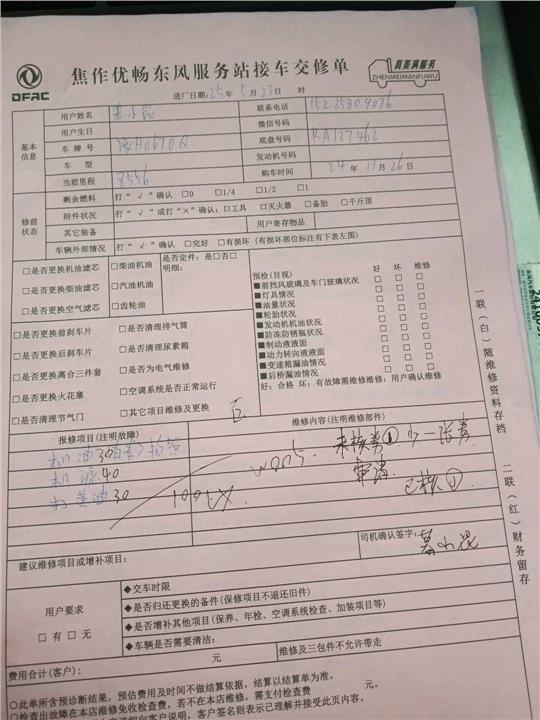 DFAC
焦作优畅东风服务站接车交修单
真美满服务
ZHENMEIMANFUWU
进厂日期: 25 年 5 月 23 日 时
基本信息
用户姓名 联系电话 15225809076
用户生日 微信号码
车 牌 号 豫H0670Q 底盘号码 RA127462
车 型 发动机号码
当前里程 8556 购车时间 24 年 11 月 26 日
修前状态
剩余燃料 打“√”确认 □0 □1/4 □1/2 □1
附件状况 打“√”或打“×”确认: □工具 □灭火器 □备胎 □千斤顶
其它装备 用户寄存物品
车辆外部情况 打“√”确认 □完好 □有损坏 (有损坏部位标注有下表左图)
□是否更换机油滤芯 □柴油机油 是否定件: 是□否□
明细:
□是否更换柴油滤芯 □汽油机油
□是否更换空气滤芯 □齿轮油
□是否更换前刹车片 □是否清理排气筒
□是否更换后刹车片 □是否清理尿素箱
□是否更换离合三件套 □是否为电气维修
□是否更换火花塞 □空调系统是否正常运行
□是否清理节气门 □其它项目维修及更换
预检(目视) 好 坏 维修
■前挡风玻璃及车门玻璃状况 □ □ □
■灯具情况 □ □ □
■油量状况 □ □ □
■轮胎状况 □ □ □
■发动机机油状况 □ □ □
■防冻防锈瓶状况 □ □ □
■制动液液面 □ □ □
■动力转向液液面 □ □ □
■变速箱漏油情况 □ □ □
■后桥漏油情况 □ □ □
好: 合格 坏: 有故障需维修维修: 用户确认维修
报修项目(注明故障) 维修内容(注明维修部件)
机油30
机滤40
30
100
已核①
司机确认签字:
建议维修项目或增补项目:
用户要求
□有 □无
◆交车时限
◆是否归还更换的备件(保修项目不退还旧件)
◆是否增补其他项目(保养、年检、空调系统检查、加装项目等)
◆车辆是否需要清洁:
费用合计(客户): 元 维修及三包件不允许带走
○此单所含预诊断结果, 预估费用及时间不做结算依据, 结算以结算单为准。
○检查出故障在本店维修免收检查费, 若不在本店维修, 需支付检查费 元
细向客户说明, 客户签名则表示已理解并接受此页内容。
一联(白)随维修资料存档
二联(红)财务留存